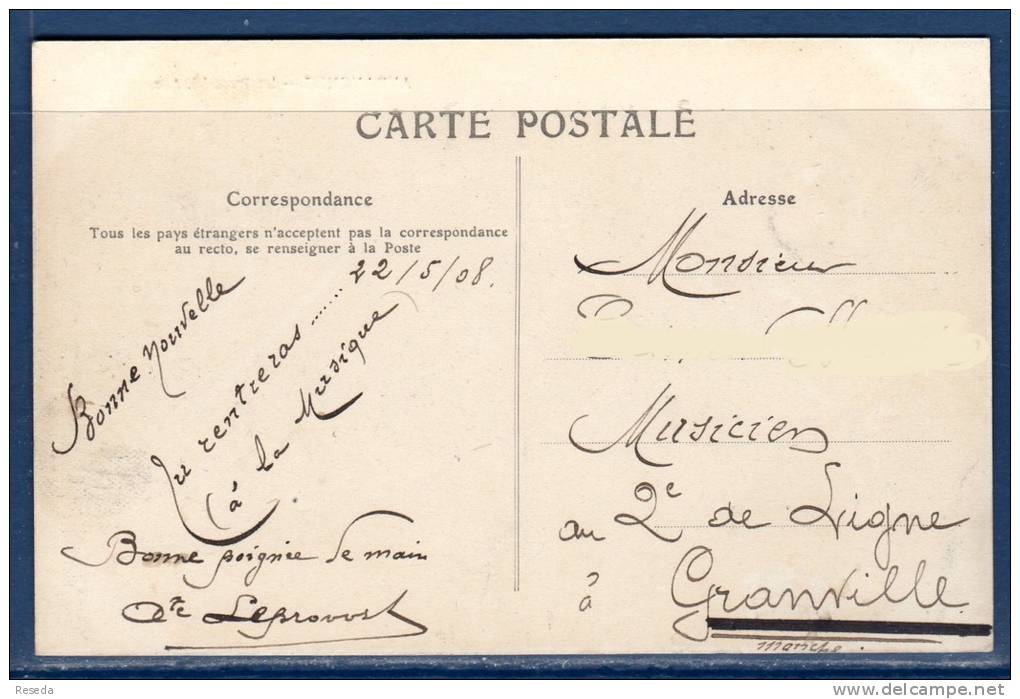 CARTE POSTALE
Correspondance
Tous les pays étrangers n'acceptent pas la correspondance
au recto, se renseigner à la Poste
22/5/08.
Bonne Nouvelle
Tu rentreras ......
(à la Musique)
Bonne poignée de main
Leprovost
Adresse
Monsieur
Musicien
au 2e de Ligne
à Granville
Manche
Reseda
delcampe.net